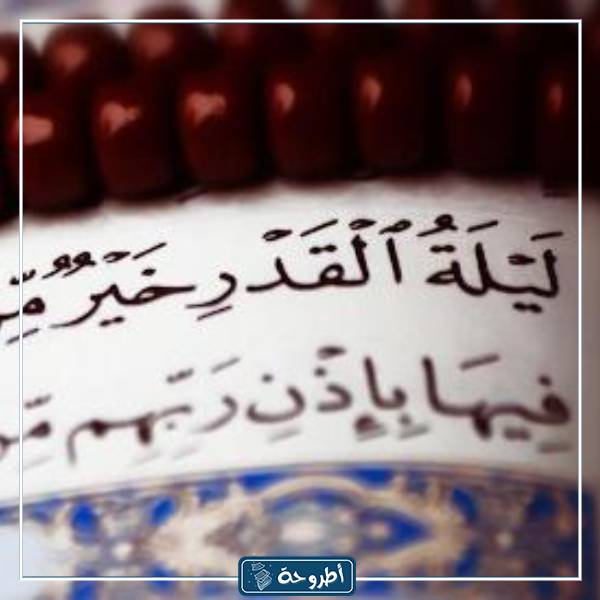 لَيْلَةُ ٱلْقَدْرِ خَيْرٌ مِّ
فِيهَا بِإِذْنِ رَبِّهِم مِّ
أطروحة